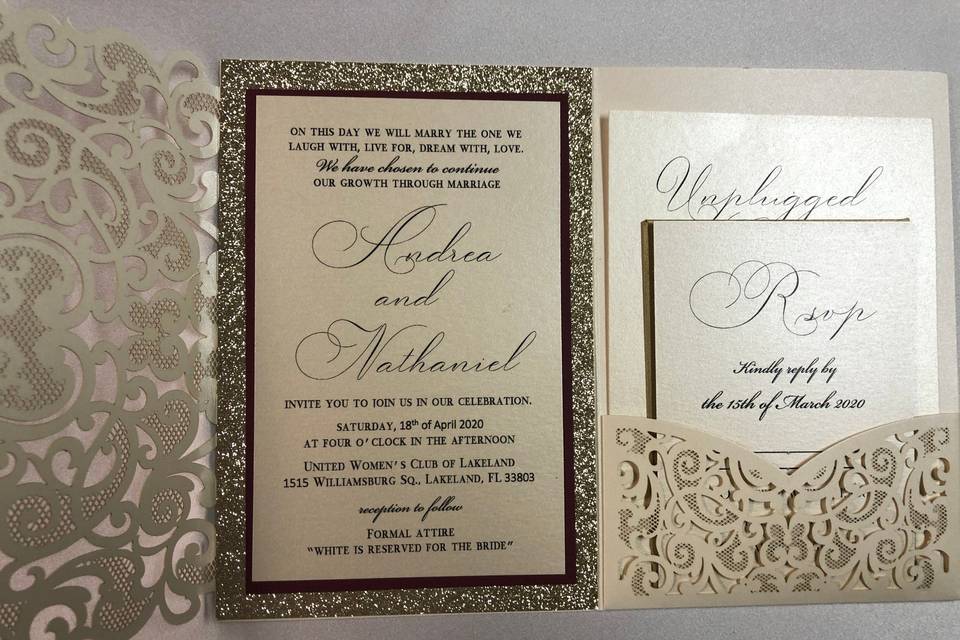 ON THIS DAY WE WILL MARRY THE ONE WE
LAUGH WITH, LIVE FOR, DREAM WITH, LOVE.
We have chosen to continue
OUR GROWTH THROUGH MARRIAGE
Andrea
and
Nathaniel
INVITE YOU TO JOIN US IN OUR CELEBRATION.
SATURDAY, 18th of April 2020
AT FOUR O'CLOCK IN THE AFTERNOON
UNITED WOMEN'S CLUB OF LAKELAND
1515 WILLIAMSBURG SQ., LAKELAND, FL 33803
reception to follow
FORMAL ATTIRE
"WHITE IS RESERVED FOR THE BRIDE"
Unplugged
Rsvp
Kindly reply by
the 15th of March 2020